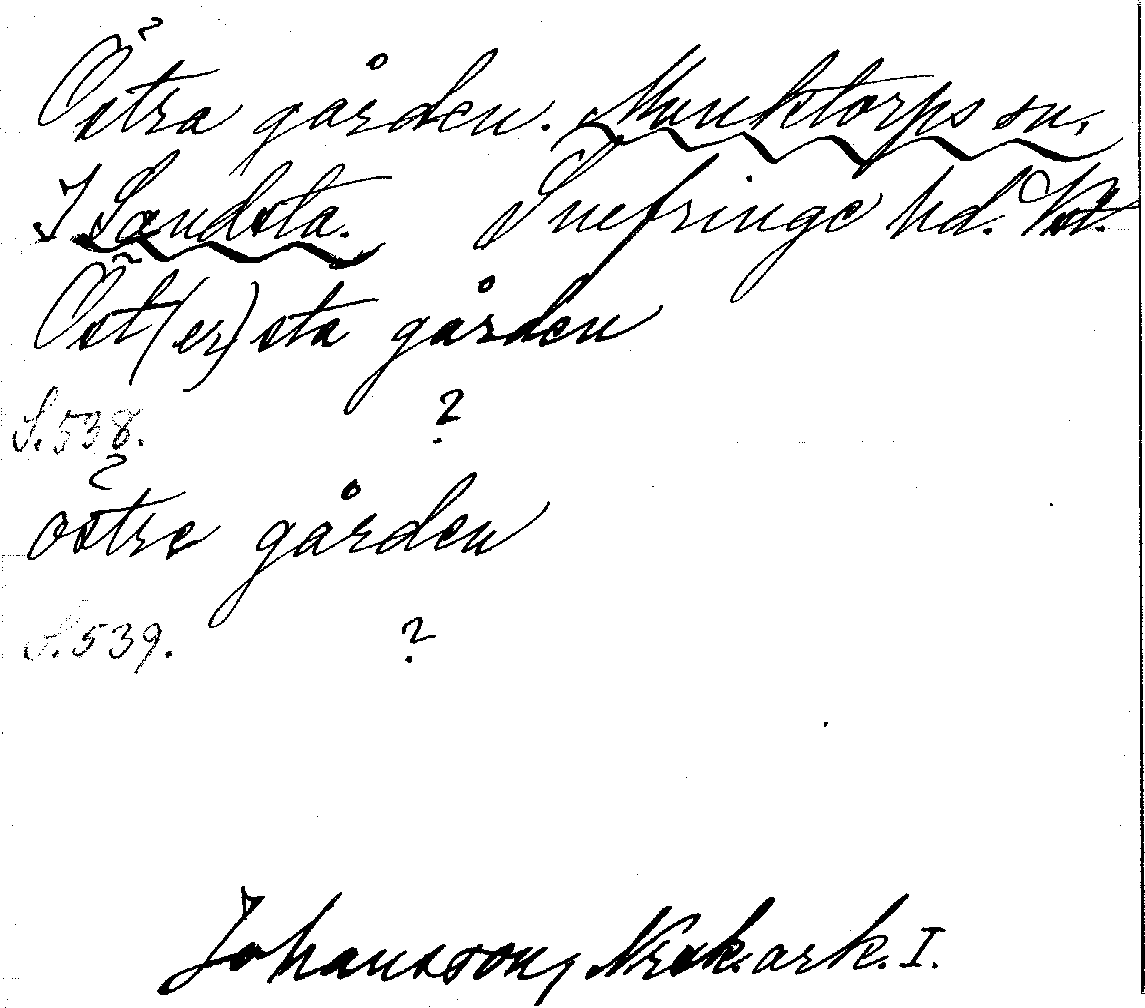 Östra gården. Munktorps sn.
I Sandsta. Snefringe hd. Vstl.
Öst(er)sta gården
S. 538. ?
östre gården
S. 539. ?
Johansson, Nrsk. ark. I.